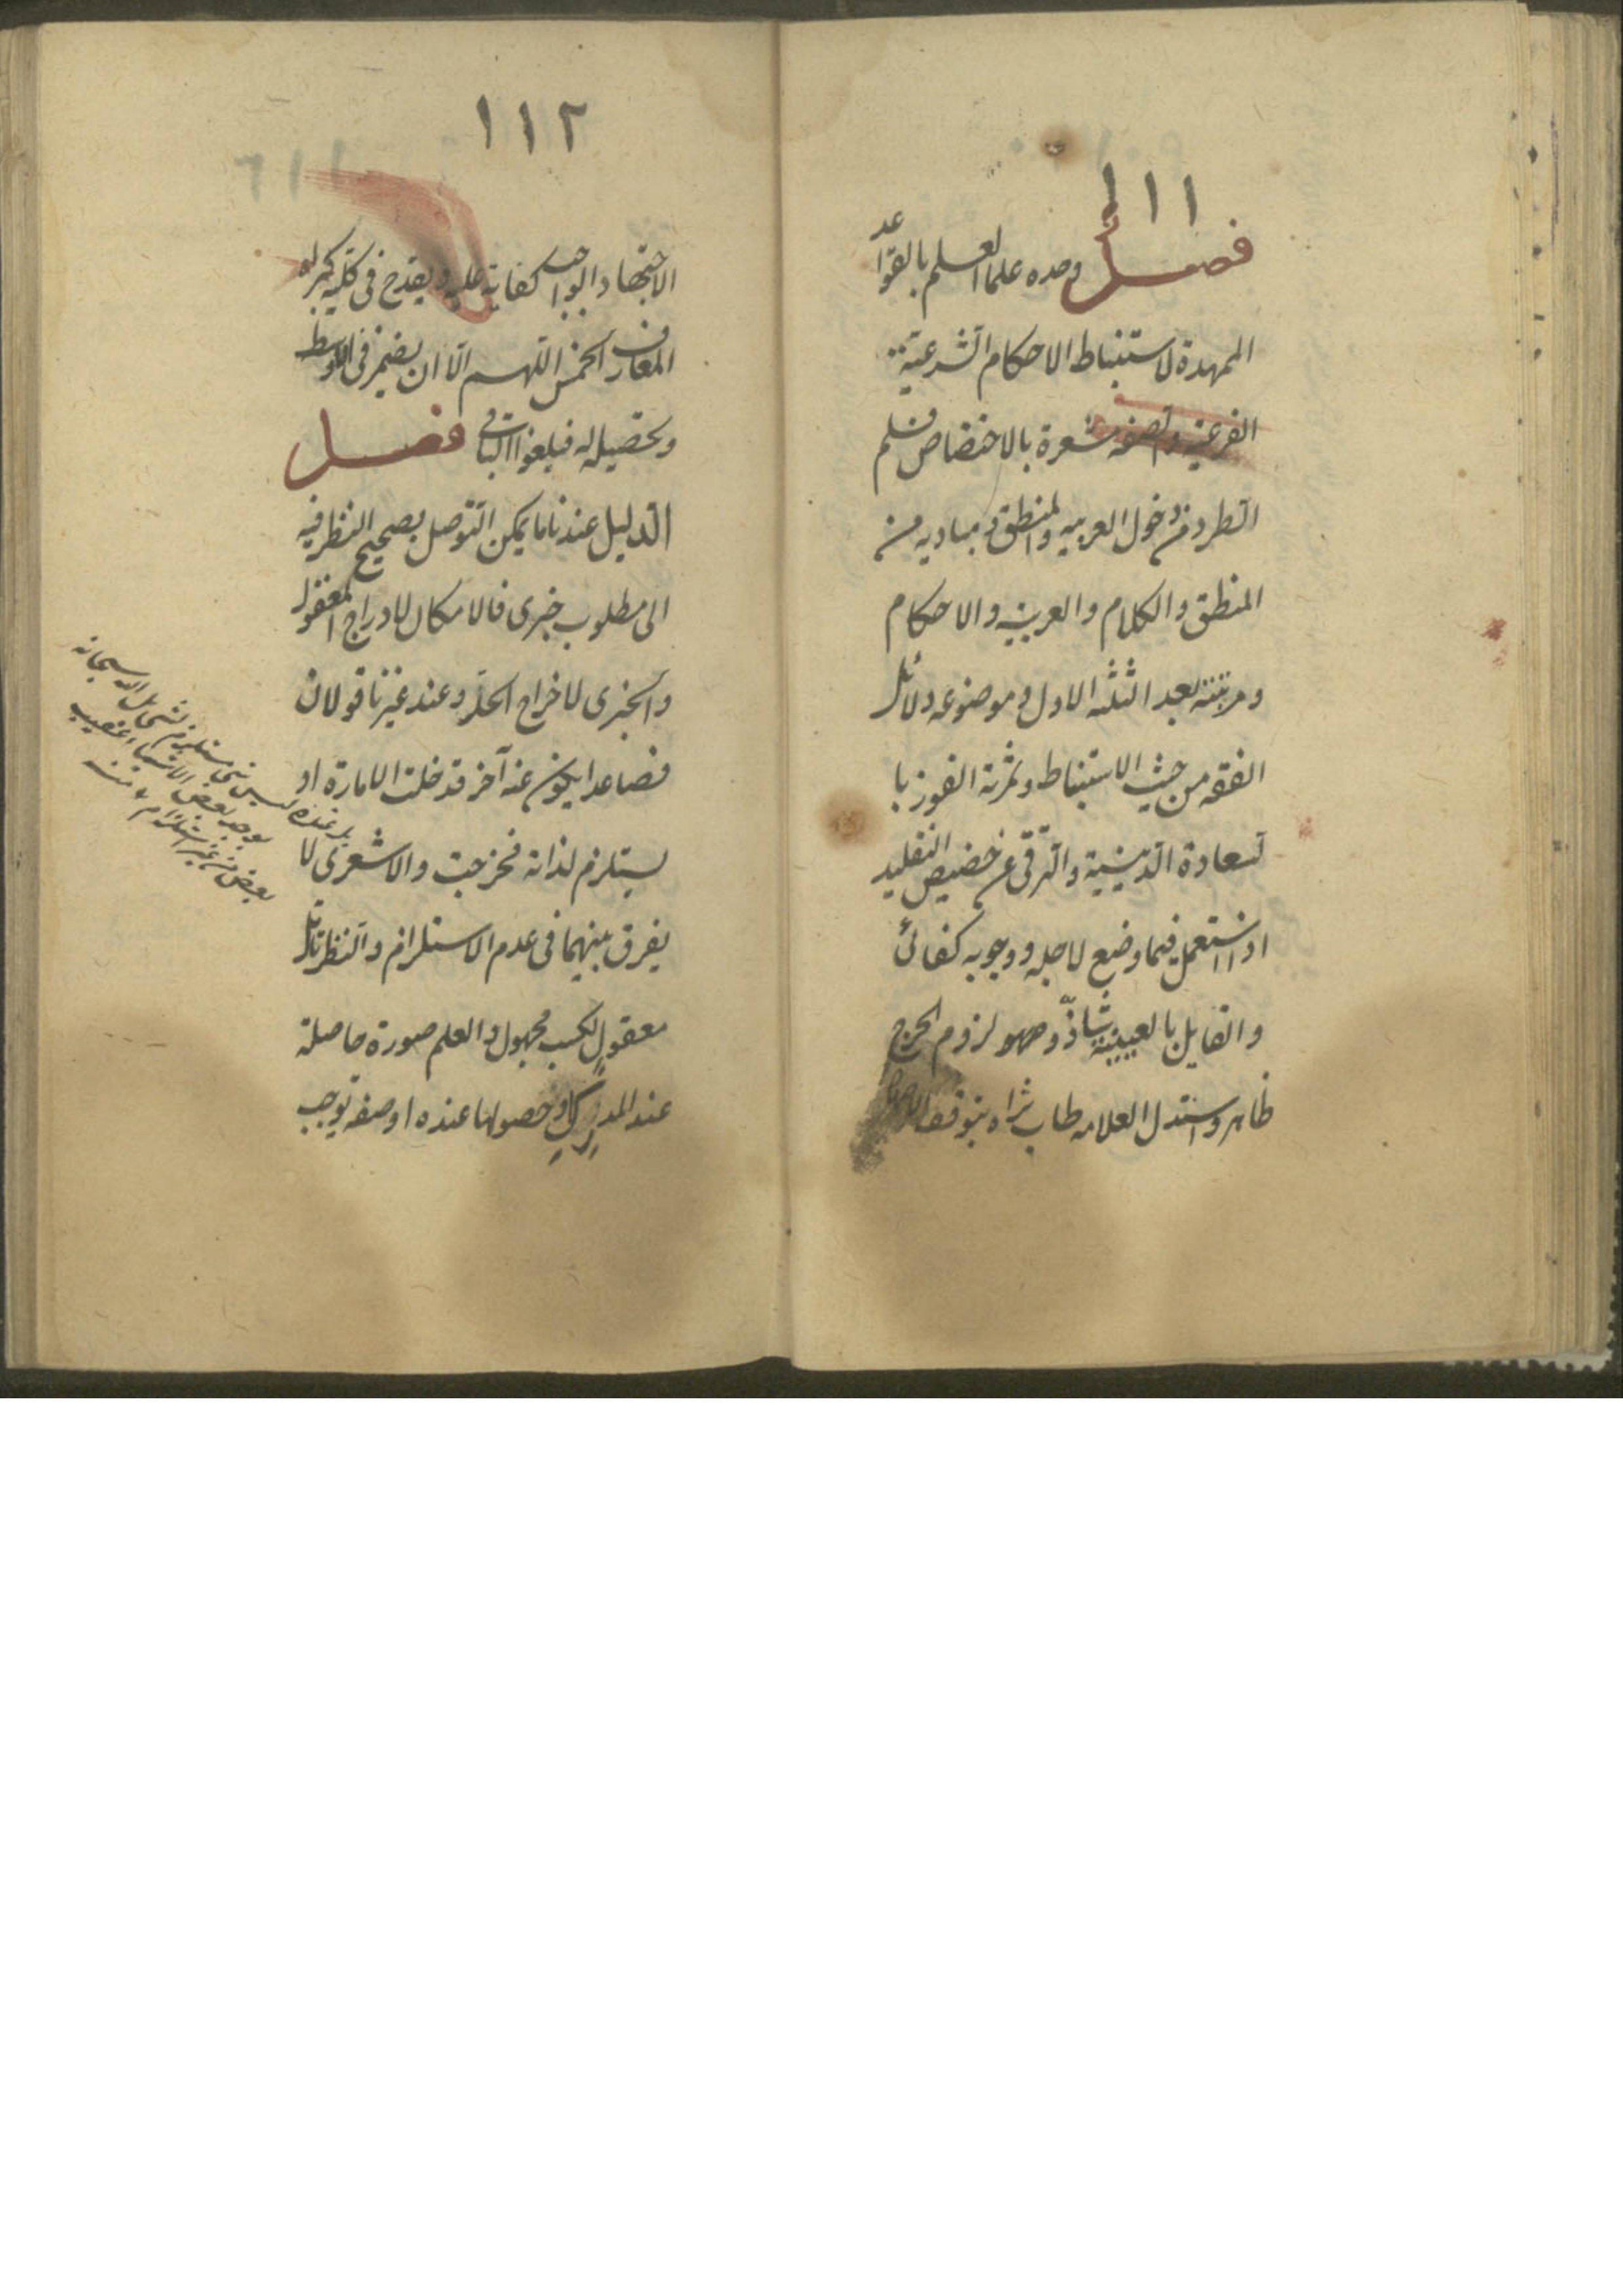 ١١١
فصل وحده علما العلم بالقواعد
الممهدة لاستنباط الاحكام الشرعية
الفرعية والصفه مشعرة بالاختصاص فسلم
الطرد من دخول العربيه والمنطق ومباديه من
المنطق والكلام والعربية والاحكام
ومرتبته بعد الثلثه الاول وموضوعه دلائل
الفقه من حيث الاستنباط وثمرته الفوز با
لسعادة الدينية والترقى عن حضيض التقليد
اذا استعمل فيما وضع لاجله ووجوبه كفائى
والقايل بالعينية شاذّ وهو لزوم الحرج
ظاهر واستدل العلامه طاب ثراه بتوقف
١١٢
الاجتهاد الواجب كفاية عليه ويقدح فى كلية كبراه
المعارف الخمس اللهم الا ان يضم فى الاوسط
وتحصيله له فيلغوا الباقى فصل
الدليل عندنا ما يمكن التوصل بصحيح النظر فيه
الى مطلوب خبرى فالامكان لادراج المغفول
والخبرى لاخراج الحد وعند غيرنا قولان
فصاعدا يكون عنه آخر فدخلت الامارة او
يستلزم لذاته فخرجت والاشعرى لا
يفرق بينهما فى عدم الاستلزام والنظر تأمل
معقول لكسب مجهول والعلم صورة حاصلة
عند المدرك او حصولها عنده او صفه توجب
اذ عنده ليس شئ مستلزم لشئ بل الله سبحانه
يوجد بعض الاشياء عقيب
بعض من غير استلزام منه